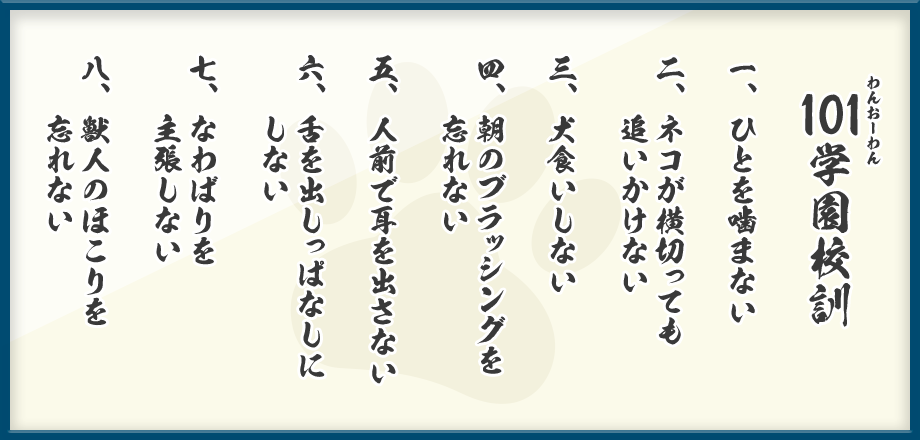 わんおーわん
101学園校訓
一、ひとを噛まない
二、ネコが横切っても
追いかけない
三、犬食いしない
四、朝のブラッシングを
忘れない
五、人前で耳を出さない
六、舌を出しっぱなしに
しない
七、なわばりを
主張しない
八、獣人のほこりを
忘れない